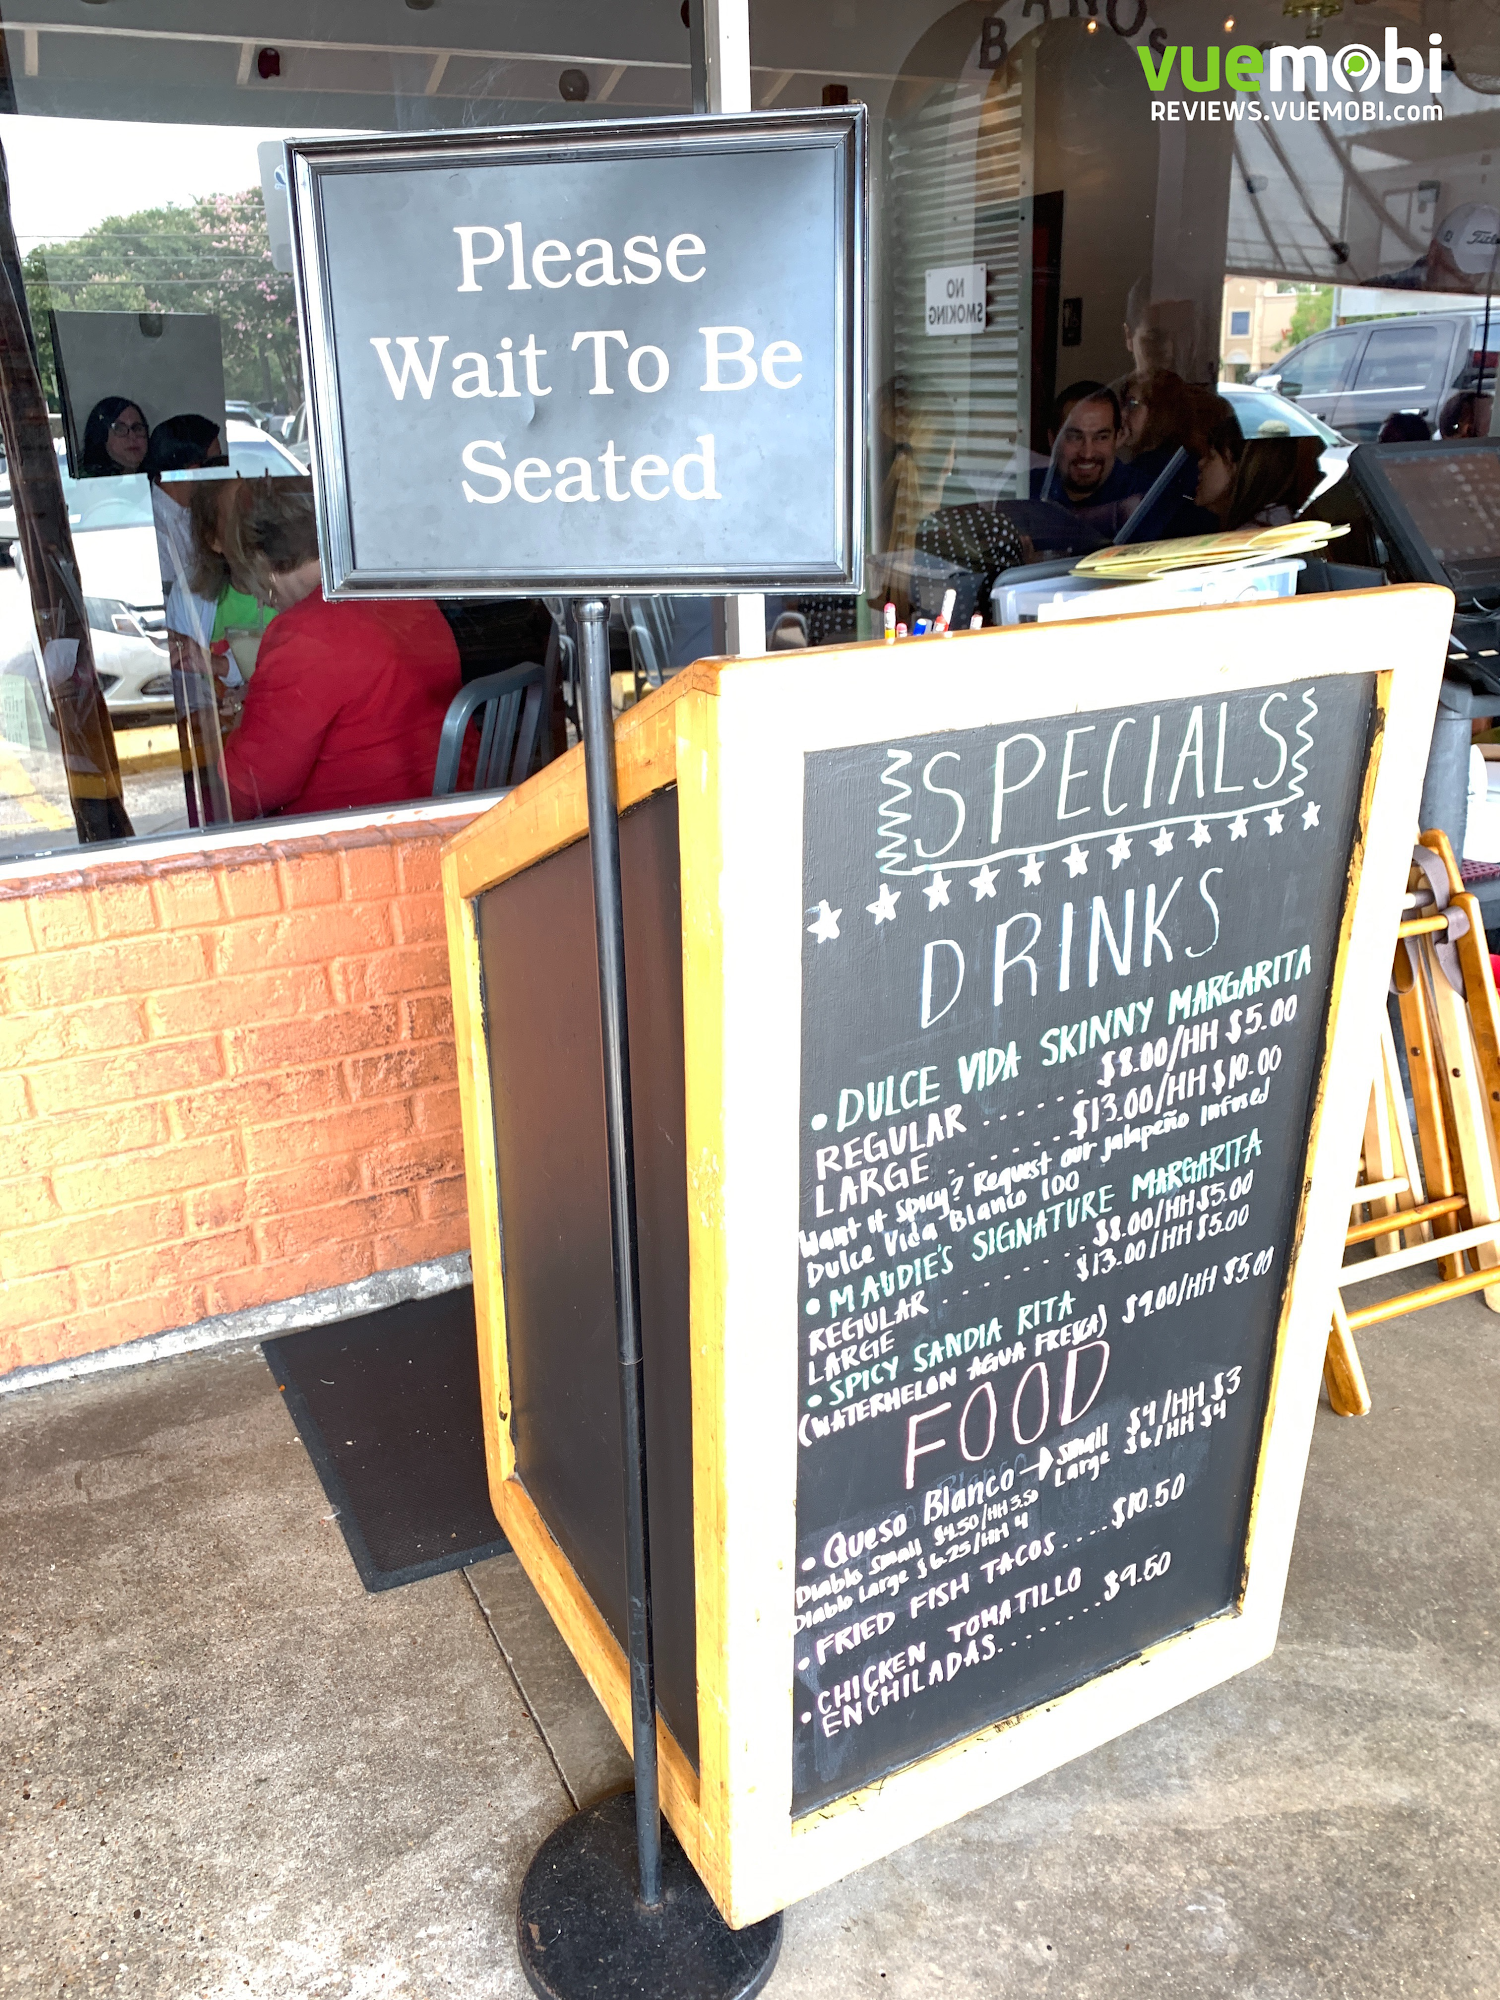 BANOS
vuemobi
REVIEWS.VUEMOBI.com
Please
Wait To Be
Seated
NO
SMOKING
SPECIALS
DRINKS
• DULCE VIDA SKINNY MARGARITA
REGULAR ...... $8.00/HH $5.00
LARGE ...... $13.00/HH $10.00
Want it spicy? Request our jalapeño infused
Dulce Vida Blanco 100
• MAUDIE'S SIGNATURE MARGARITA
REGULAR ...... $8.00/HH $5.00
LARGE $13.00/HH $5.00
• SPICY SANDIA RITA
(WATERMELON AGUA FRESCA) $9.00/HH $5.00
FOOD
• Queso Blanco → small $4/HH $3
Large $6/HH $4
Diablo Small $4.50/HH 3.50
Diablo Large $6.25/HH 4
• FRIED FISH TACOS.... $10.50
• CHICKEN TOMATILLO
ENCHILADAS........ $9.50